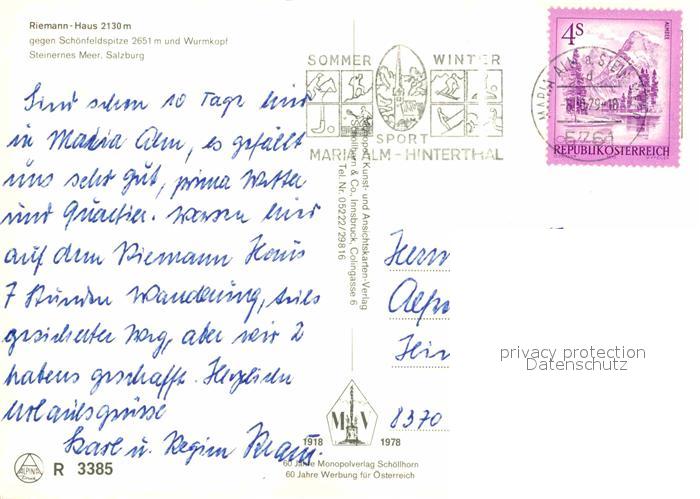 Riemann-Haus 2130 m
gegen Schönfeldspitze 2651 m und Wurmkopf
Steinernes Meer, Salzburg
Sind schon 10 Tage hier
in Maria Alm, es gefällt
uns sehr gut, prima Wetter
und Quartier. waren hier
auf dem Riemann Haus
7 Stunden Wanderung, teils
gesicherter Weg, aber wir 2
habens geschafft. Herzliche
Urlaubsgrüsse
Karl u. Regina
R 3385
ALPINA
SOMMER WINTER
SPORT
MARIA ALM - HINTERTHAL
Monopol Kunst- und Ansichtskarten-Verlag
Schöllhorn & Co., Innsbruck, Colingasse 6
Tel. Nr. 05222/29816
4S
ALMSEE
REPUBLIK ÖSTERREICH
MARIA ALM a. STEIN
5761
Herrn
Alfr
Hir
8370
privacy protection
Datenschutz
M V
1918 1978
60 Jahre Monopolverlag Schöllhorn
60 Jahre Werbung für Österreich